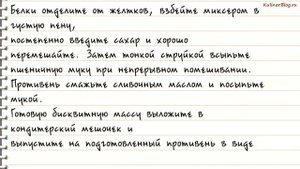 KulinerBlog.ru
Белки отделите от желтков, взбейте миксером в
густую пену,
постепенно введите сахар и хорошо
перемешайте. Затем тонкой струйкой всыпьте
пшеничную муку при непрерывном помешивании.
Противень смажьте сливочным маслом и посыпьте
мукой.
Готовую бисквитную массу выложите в
кондитерский мешочек и
выпустите на подготовленный противень в виде